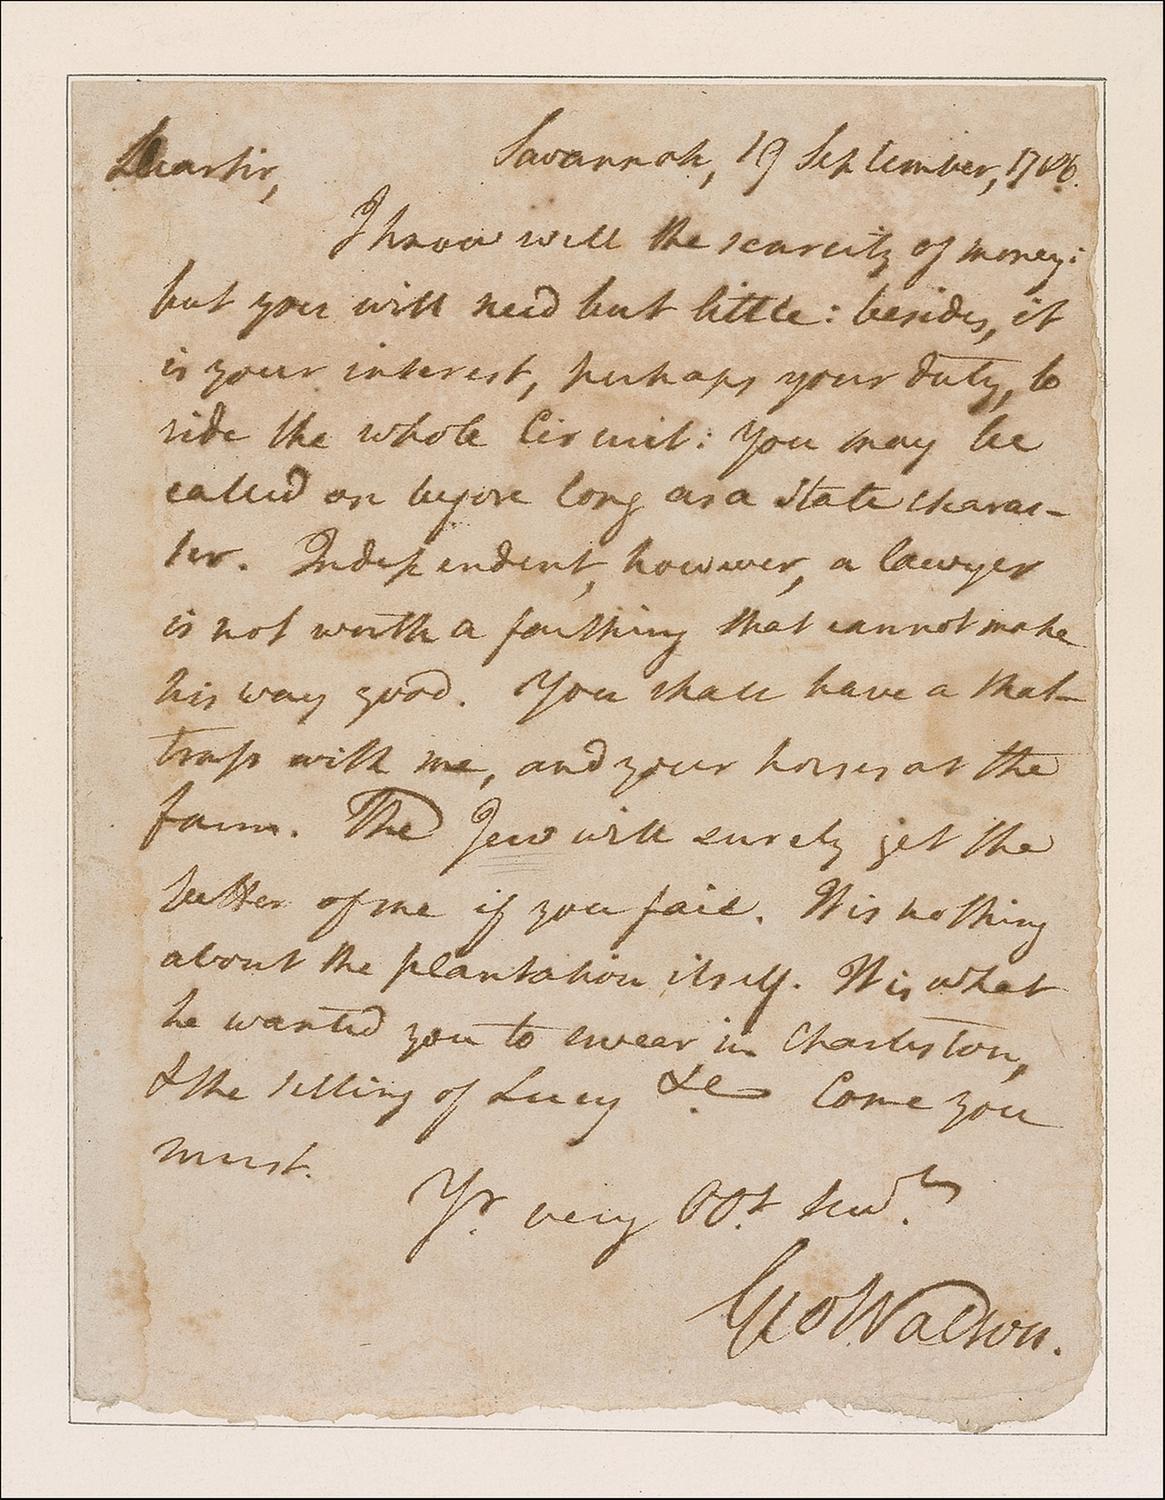 Savannah, 19 September, 1786.
Dear Sir,
I know well the scarcity of money:
but you will need but little: besides, it
is your interest, perhaps your duty, to
ride the whole Circuit: You may be
called on before long as a State charac-
ter. Independent, however, a lawyer
is not worth a farthing that cannot make
his way good. You shall have a mat-
trass with me, and your horses at the
farm. The Jew will surely get the
better of me if you fail. It is nothing
about the plantation itself. It is what
he wanted you to swear in Charleston,
& the selling of Lucy &c Come you
must.
Yr. very Obt. Servt.
Geo Walton.